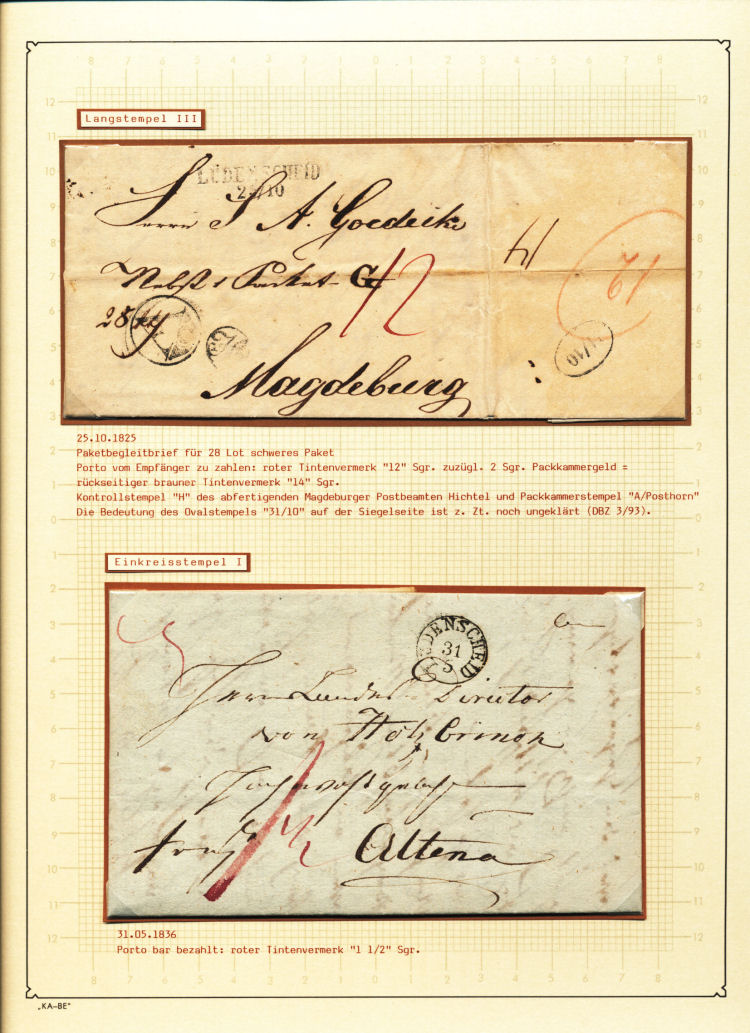 Langstempel III
LÜDENSCHEID
25/10
Herrn J. A. Goedecke
Nebst 1 Packet G
12
28
Magdeburg
31/10
25.10.1825
Paketbegleitbrief für 28 Lot schweres Paket
Porto vom Empfänger zu zahlen: roter Tintenvermerk "12" Sgr. zuzügl. 2 Sgr. Packkammergeld =
rückseitiger brauner Tintenvermerk "14" Sgr.
Kontrollstempel "H" des abfertigenden Magdeburger Postbeamten Hichtel und Packkammerstempel "A/Posthorn"
Die Bedeutung des Ovalstempels "31/10" auf der Siegelseite ist z. Zt. noch ungeklärt (DBZ 3/93).
Einkreisstempel I
LÜDENSCHEID
31
5
Herrn Landes Director
von Holzbrinck
Altena
1 1/2
31.05.1836
Porto bar bezahlt: roter Tintenvermerk "1 1/2" Sgr.
„KA-BE"